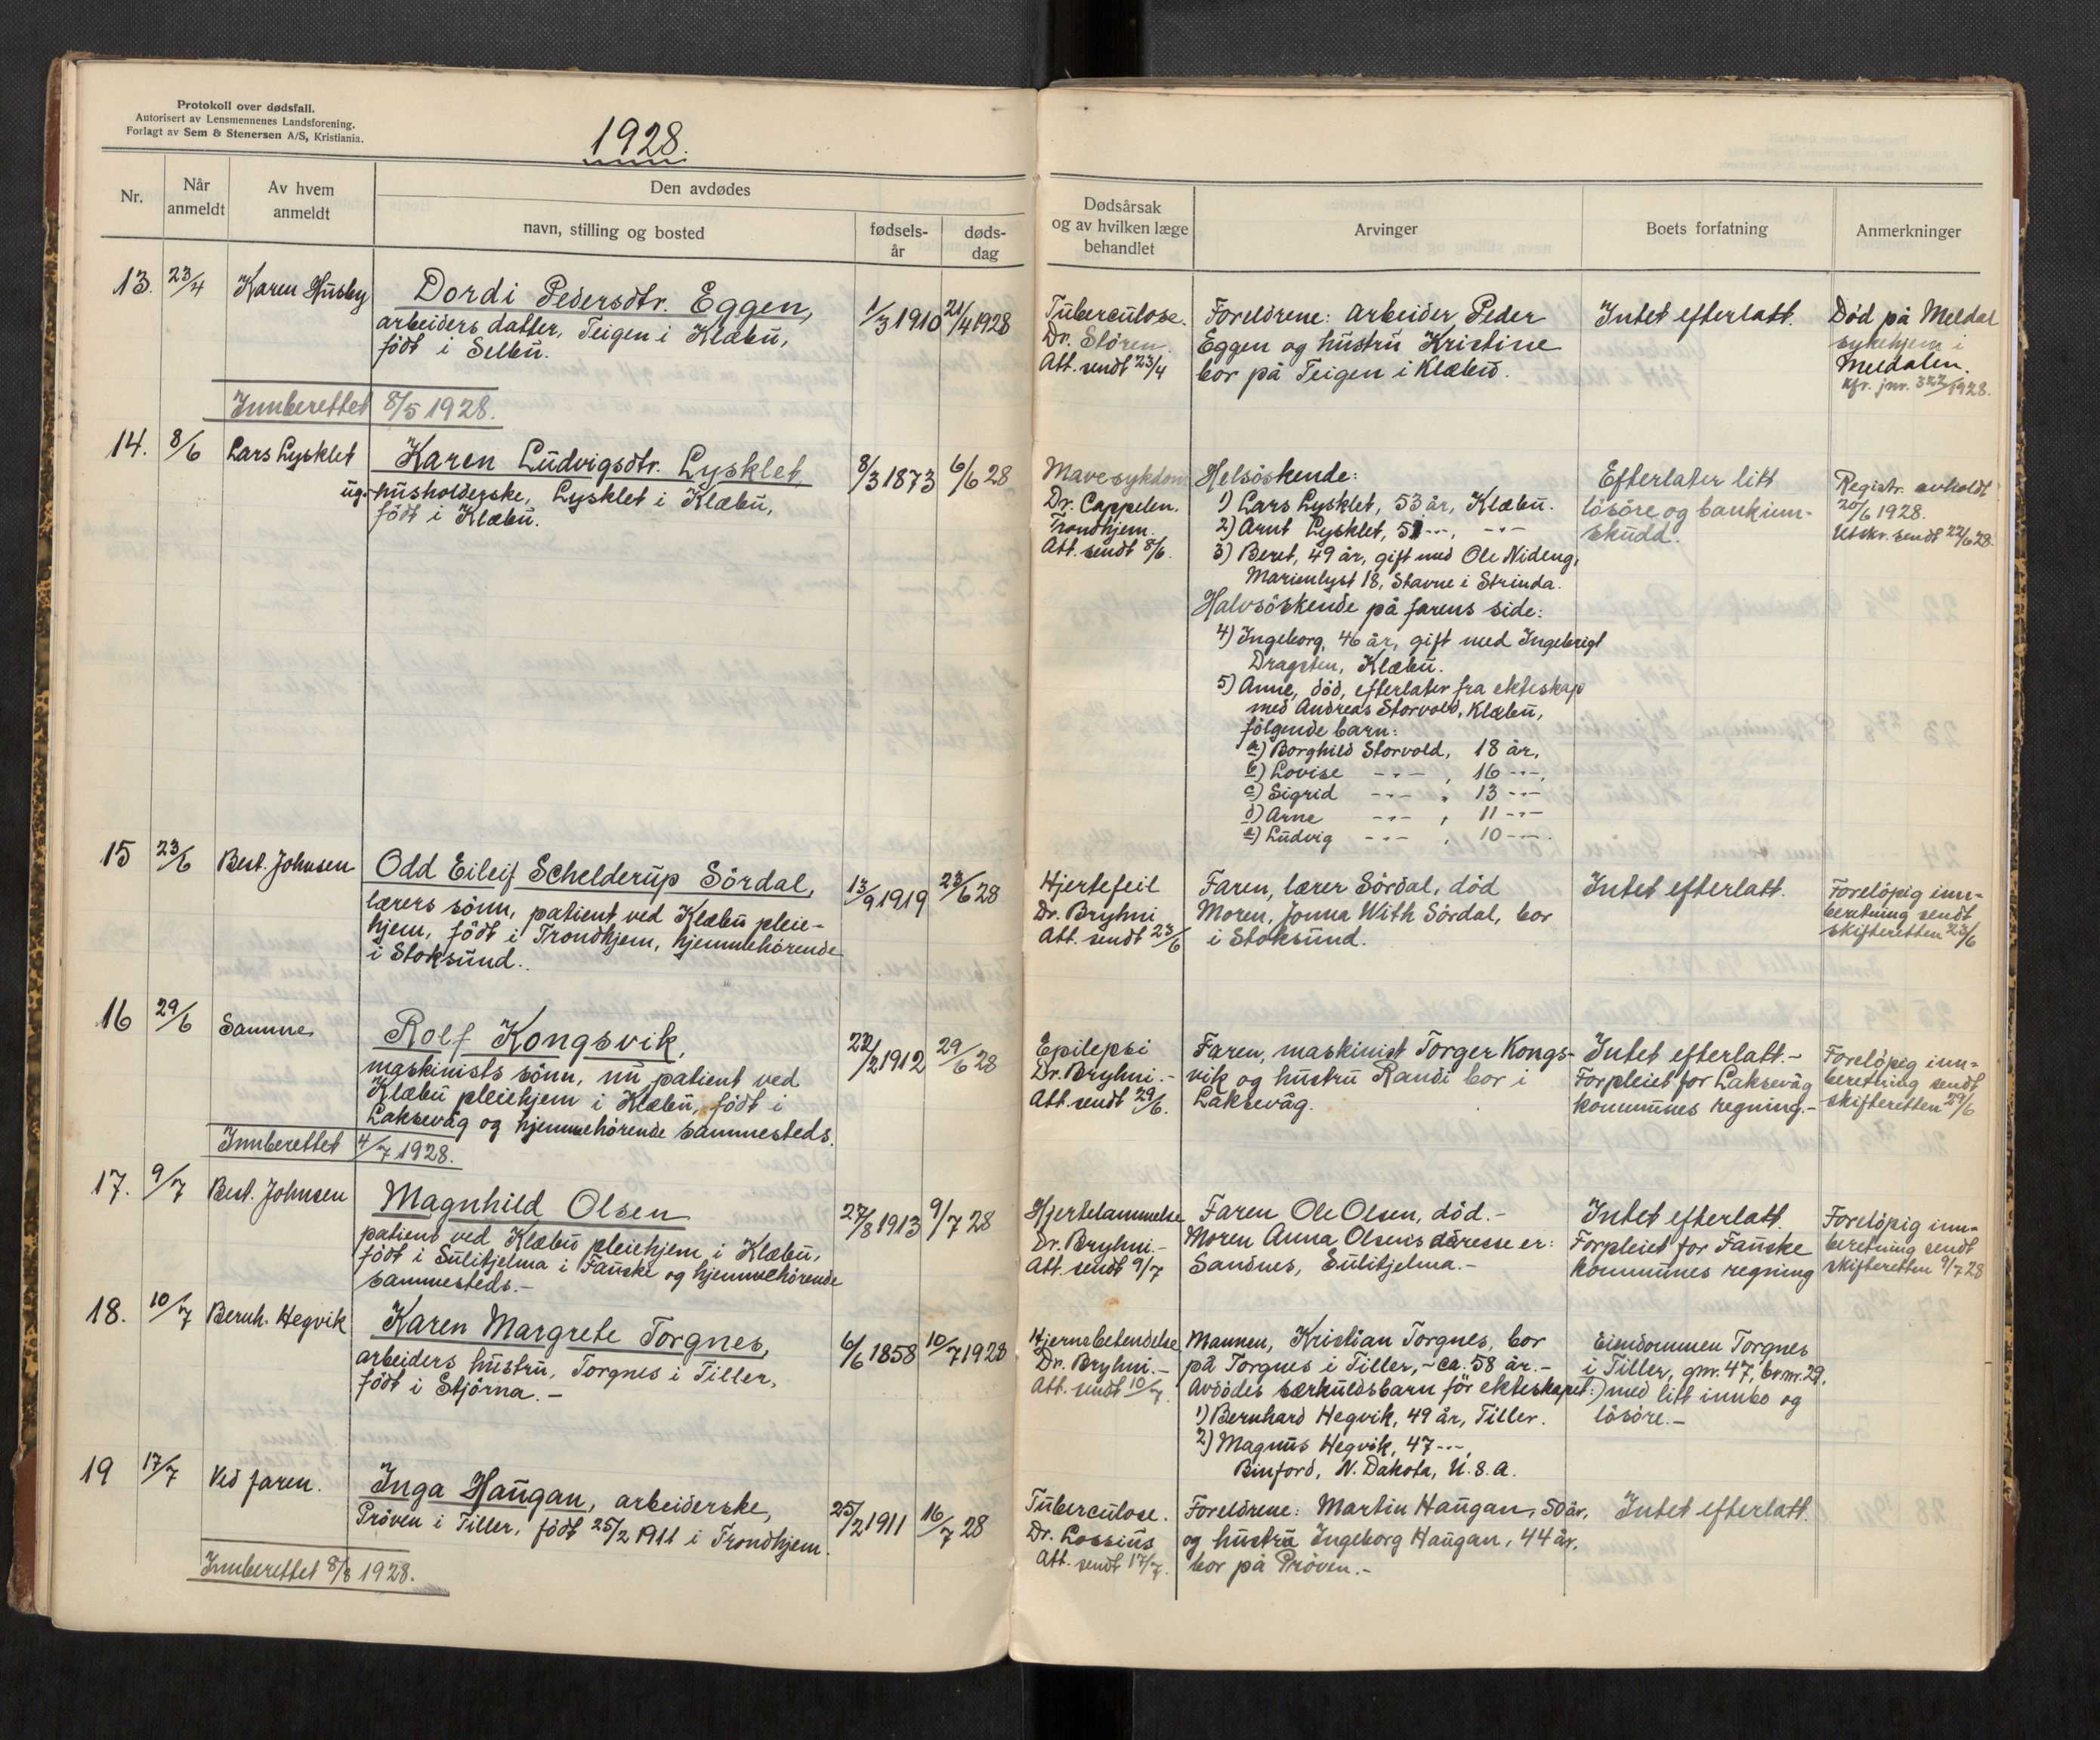 Protokoll over dødsfall.
Autorisert av Lensmennenes Landsforening.
Forlagt av Sem & Stenersen A/S, Kristiania.
1928.
Nr.
Når anmeldt
Av hvem anmeldt
Den avdødes
navn, stilling og bosted
fødsels-
år
døds-
dag
Dødsårsak
og av hvilken læge
behandlet
Arvinger
Boets forfatning
Anmerkninger
13. 23/4 Karen Husby
Dordi Pedersdtr. Eggen,
arbeiders datter, Teigen i Klæbu,
født i Selbu.
1/3 1910 21/4 1928
Tuberculose.
Dr. Stören.
Att. sendt 23/4
Foreldrene: Arbeider Peder
Eggen og hustru Kristine
bor på Teigen i Klæbu.
Intet efterlatt.
Død på Meldal
sykehjem i
Meldalen.
Kfr. jnr. 322/1928.
Innberettet 8/5 1928.
14. 8/6 Lars Lysklet
Karen Ludvigsdtr. Lysklet
ug. husholderske, Lysklet i Klæbu,
født i Klæbu.
8/3 1873 6/6 28
Mavesykdom
Dr. Cappelen.
Trondhjem.
Att. sendt 8/6.
Helsöskende:
1) Lars Lysklet, 53 år, Klæbu.
2) Arnt Lysklet, 51 -"-, -"-
3) Beret, 49 år, gift med Ole Nideng,
Marienlyst 18, Stavne i Strinda.
Halvsöskende på farens side:
4) Ingeborg, 46 år, gift med Ingebrigt
Dragsten, Klæbu.
5) Anne, död, efterlater fra ekteskap
med Andreas Storvold, Klæbu,
følgende barn:
a) Borghild Storvold, 18 år,
b) Lovise -"-, 16 -"-,
c) Sigrid -"-, 13 -"-
d) Arne -"-, 11 -"-
e) Ludvig -"-, 10 -"-.
Efterlater litt
lösöre og bankinn-
skudd.
Registr. avholdt
20/6 1928.
Utskr. sendt 22/6 28.
15 23/6 Best. Johnsen
Odd Eileif Schelderup Sördal,
lærers sönn, patient ved Klæbu pleie-
hjem, födt i Trondhjem, hjemmehörende
i Stoksund.
13/9 1919 23/6 28
Hjertefeil
Dr. Bryhni
Att. sendt 23/6
Faren, lærer Sördal, död
Moren, Jonna With Sördal, bor
i Stoksund.
Intet efterlatt.
Forelöpig inn-
beretning sendt
skifteretten 23/6
16 29/6 Samme
Rolf Kongsvik,
maskinists sönn, nu patient ved
Klæbu pleiehjem i Klæbu, födt i
Laksevåg og hjemmehörende sammesteds.
22/2 1912 29/6 28
Epilepsi
Dr. Bryhni.-
Att. sendt 29/6.
Faren, maskinist Torger Kongs-
vik og hustru Randi bor i
Laksevåg.
Intet efterlatt.-
Forpleiet for Laksevåg
kommunes regning.-
Forelöpig inn-
beretning sendt
skifteretten 29/6
Innberettet 4/7 1928.
17. 9/7 Best. Johnsen
Magnhild Olsen
patient ved Klæbu pleiehjem i Klæbu,
födt i Sulitjelma i Fauske og hjemmehörende
sammesteds.-
27/8 1913 9/7 28
Hjertelammelse
Dr. Bryhni.-
Att. sendt 9/7
Faren Ole Olsen, död.-
Moren Anna Olsens adresse er:
Sandnes, Sulitjelma.-
Intet efterlatt.
Forpleiet for Fauske
kommunes regning
Forelöpig inn-
beretning sendt
skifteretten 9/7 28
18. 10/7 Bernh. Hegvik
Karen Margrete Torgnes,
arbeiders hustru, Torgnes i Tiller,
födt i Stjörna.-
6/6 1858 10/7 1928
Hjernebetendelse
Dr. Bryhni.-
Att. sendt 10/7.
Mannen, Kristian Torgnes, bor
på Torgnes i Tiller, - ca. 58 år.-
Avdödes særkuldsbarn för ekteskapet:
1) Bernhard Hegvik, 49 år, Tiller.
2) Magnus Hegvik, 47 -"-,
Binford, N. Dakota, U.S.A.
Eiendommen Torgnes
i Tiller, gnr. 47, brnr. 29,
med litt innbo og
lösöre.-
19 17/7 Ved faren.
Inga Haugan, arbeiderske,
Pröven i Tiller, födt 25/2 1911 i Trondhjem.
25/2 1911 16/7 28
Tuberculose.
Dr. Lossius
Att. sendt 17/7.
Foreldrene: Martin Haugan, 50 år,
og hustru Ingeborg Haugan, 44 år,
bor på Pröven.-
Intet efterlatt.
Innberettet 8/8 1928.